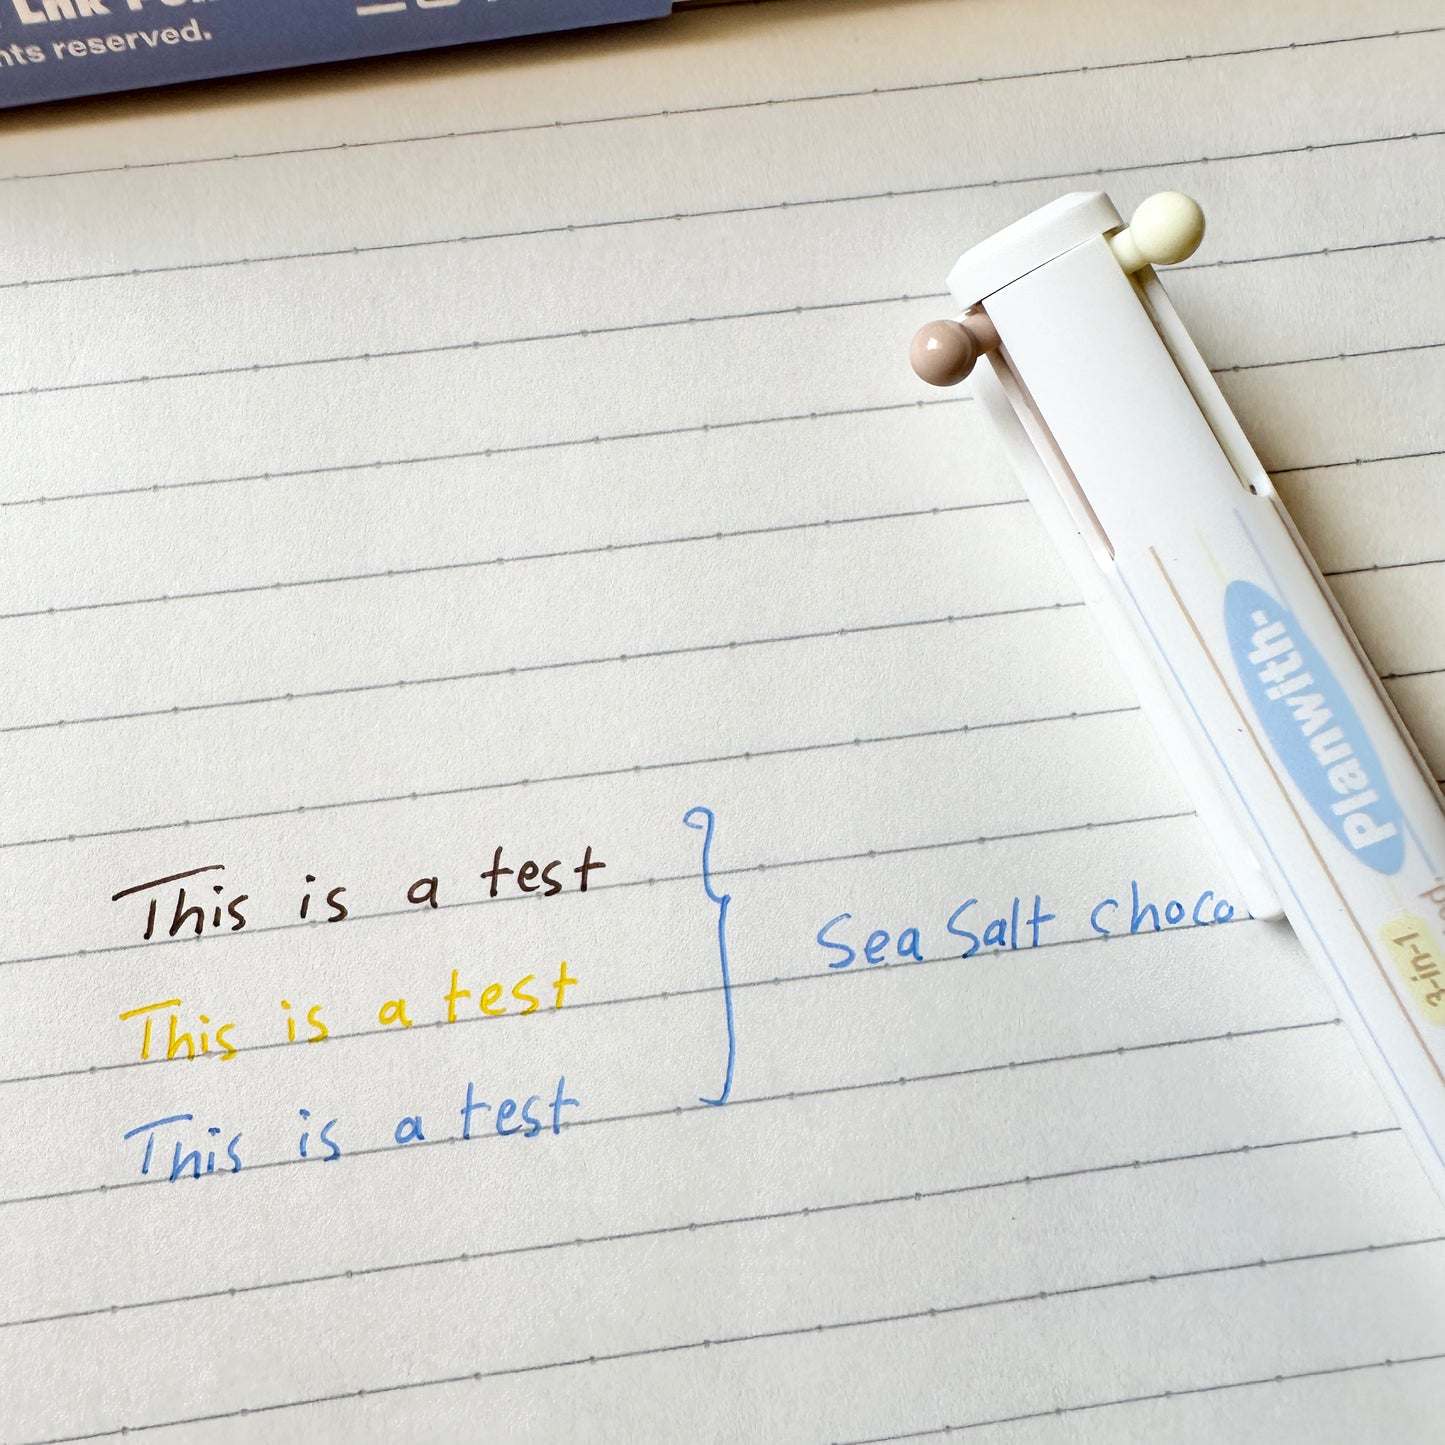 reserved.
This is a test
This is a test
This is a test
Sea Salt choco
Planwith-
3-in-1